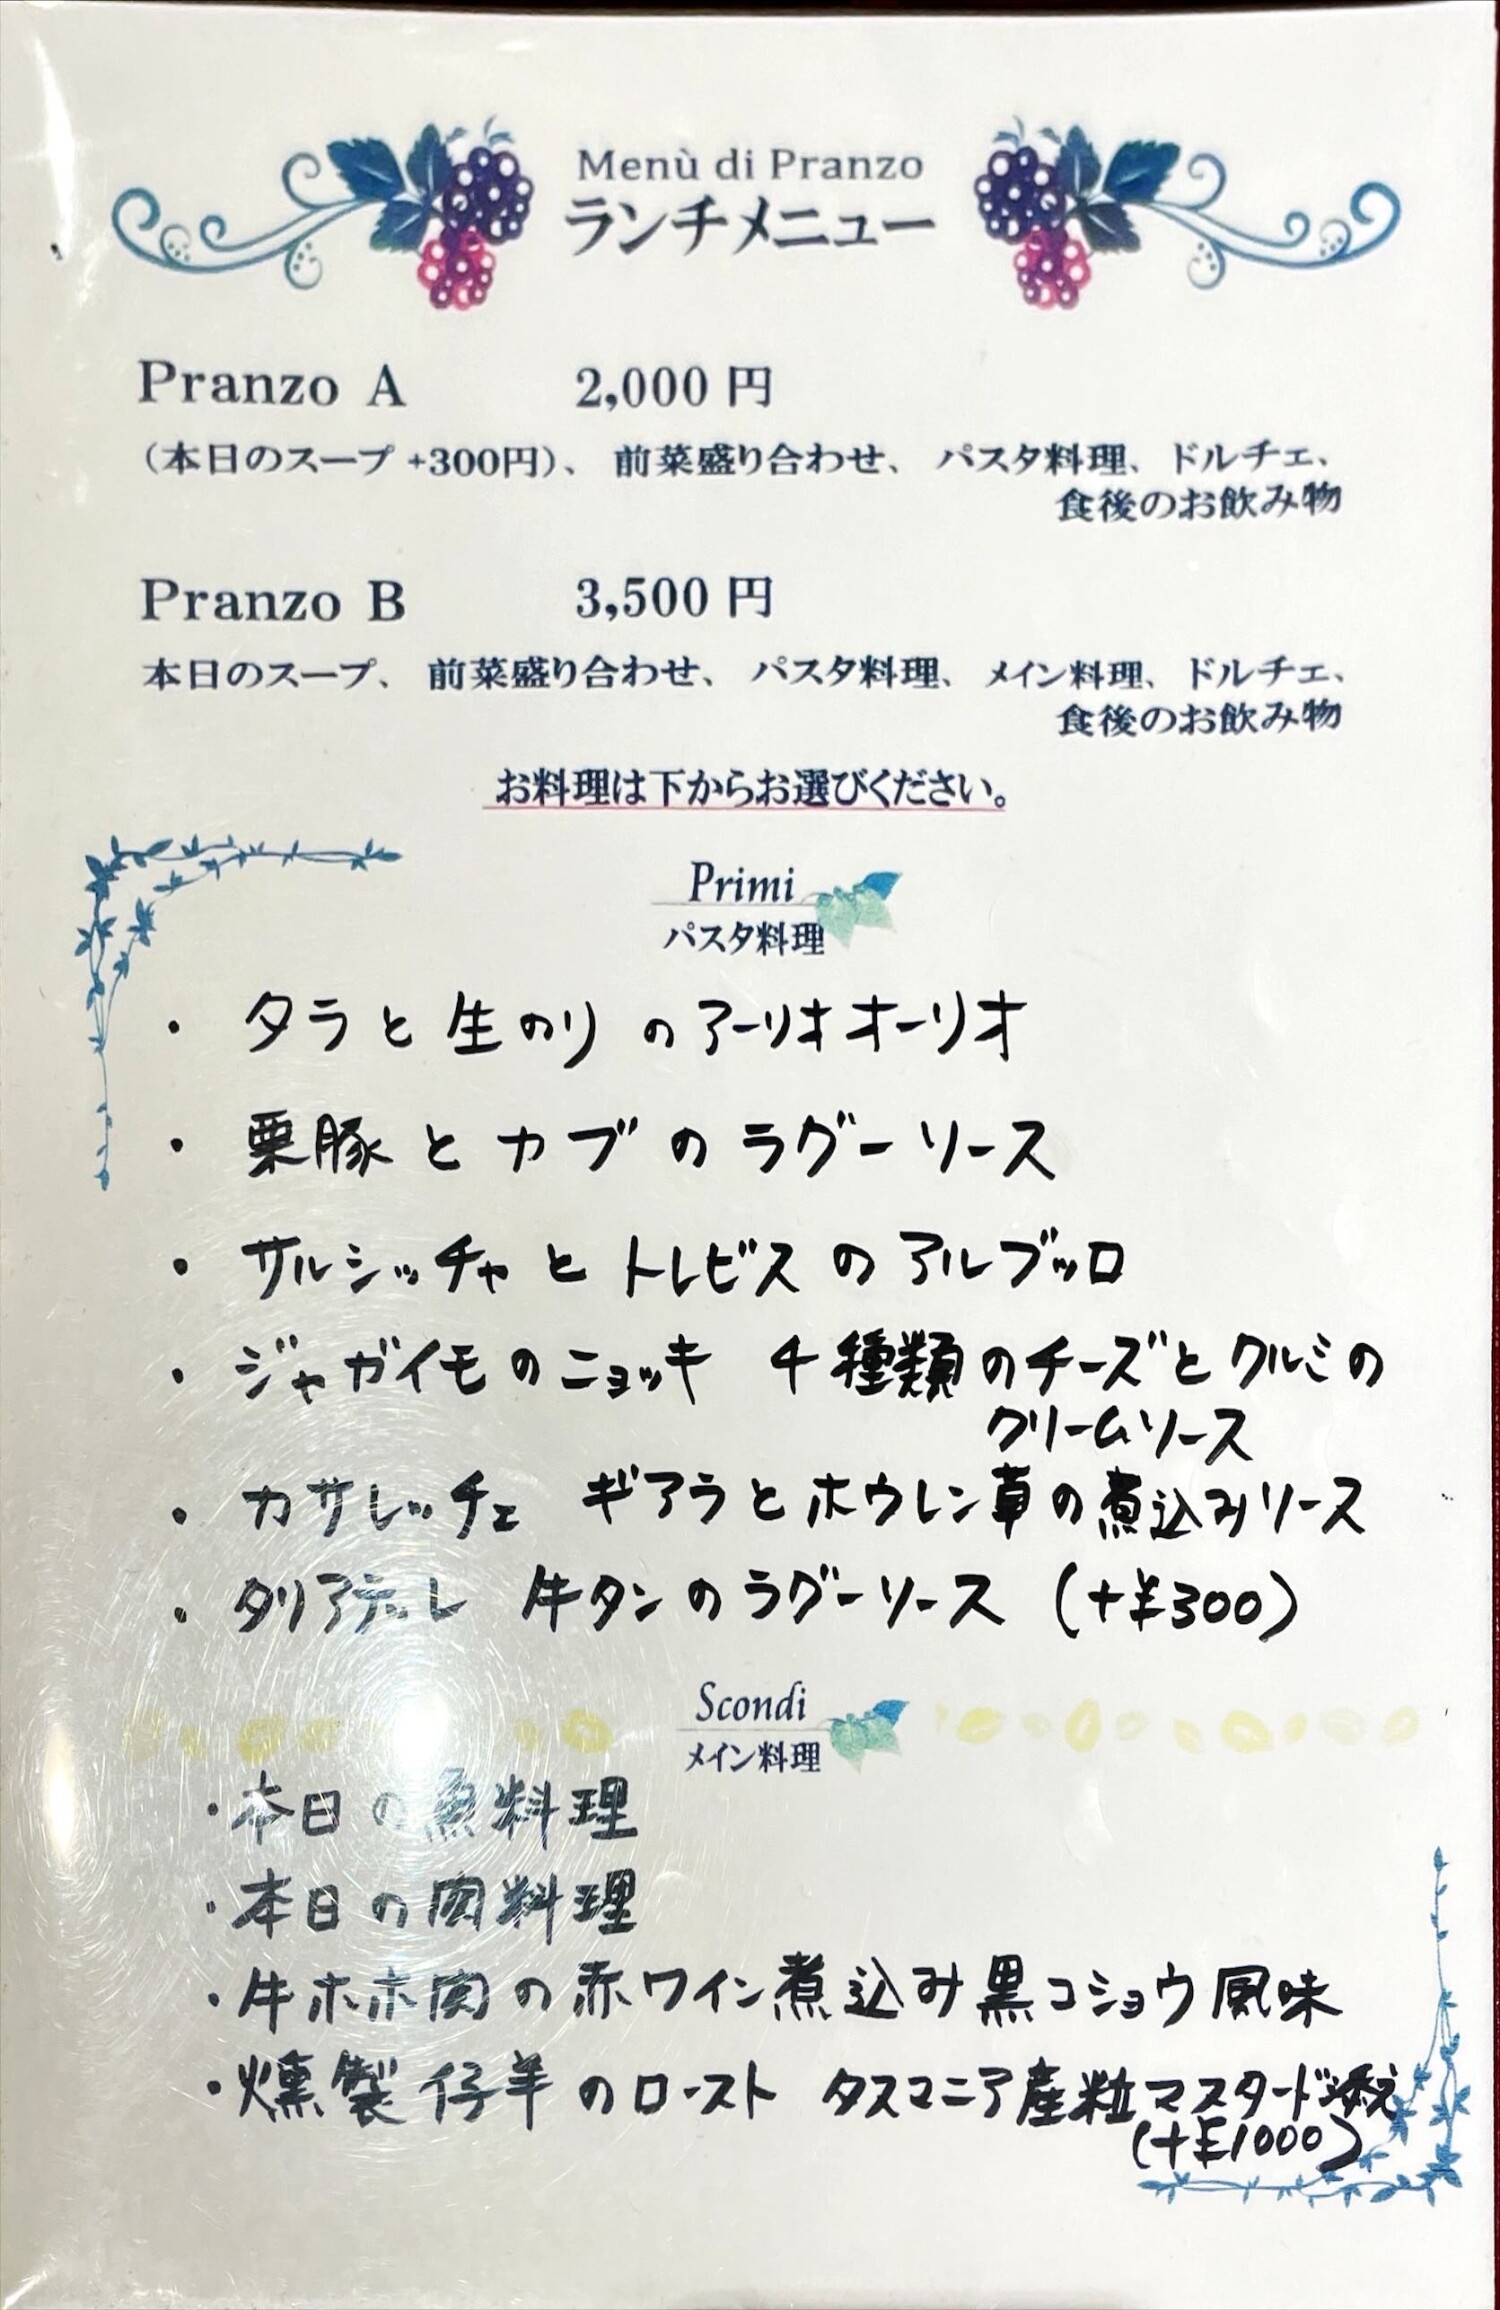 Menù di Pranzo
ランチメニュー
Pranzo A 2,000 円
（本日のスープ +300円）、 前菜盛り合わせ、 パスタ料理、 ドルチェ、
食後のお飲み物
Pranzo B 3,500 円
本日のスープ、 前菜盛り合わせ、 パスタ料理、 メイン料理、 ドルチェ、
食後のお飲み物
お料理は下からお選びください。
Primi
パスタ料理
・タラと生のりのアーリオオーリオ
・栗豚とカブのラグーソース
・サルシッチャとトレビスのアルブッロ
・ジャガイモのニョッキ 4種類のチーズとクルミの
クリームソース
・カサレッチェ ギアラとホウレン草の煮込みソース
・タリアテッレ 牛タンのラグーソース (+¥300)
Scondi
メイン料理
・本日の魚料理
・本日の肉料理
・牛ホホ肉の赤ワイン煮込み黒コショウ風味
・燻製仔羊のロースト タスマニア産粒マスタード添え
(+¥1000)